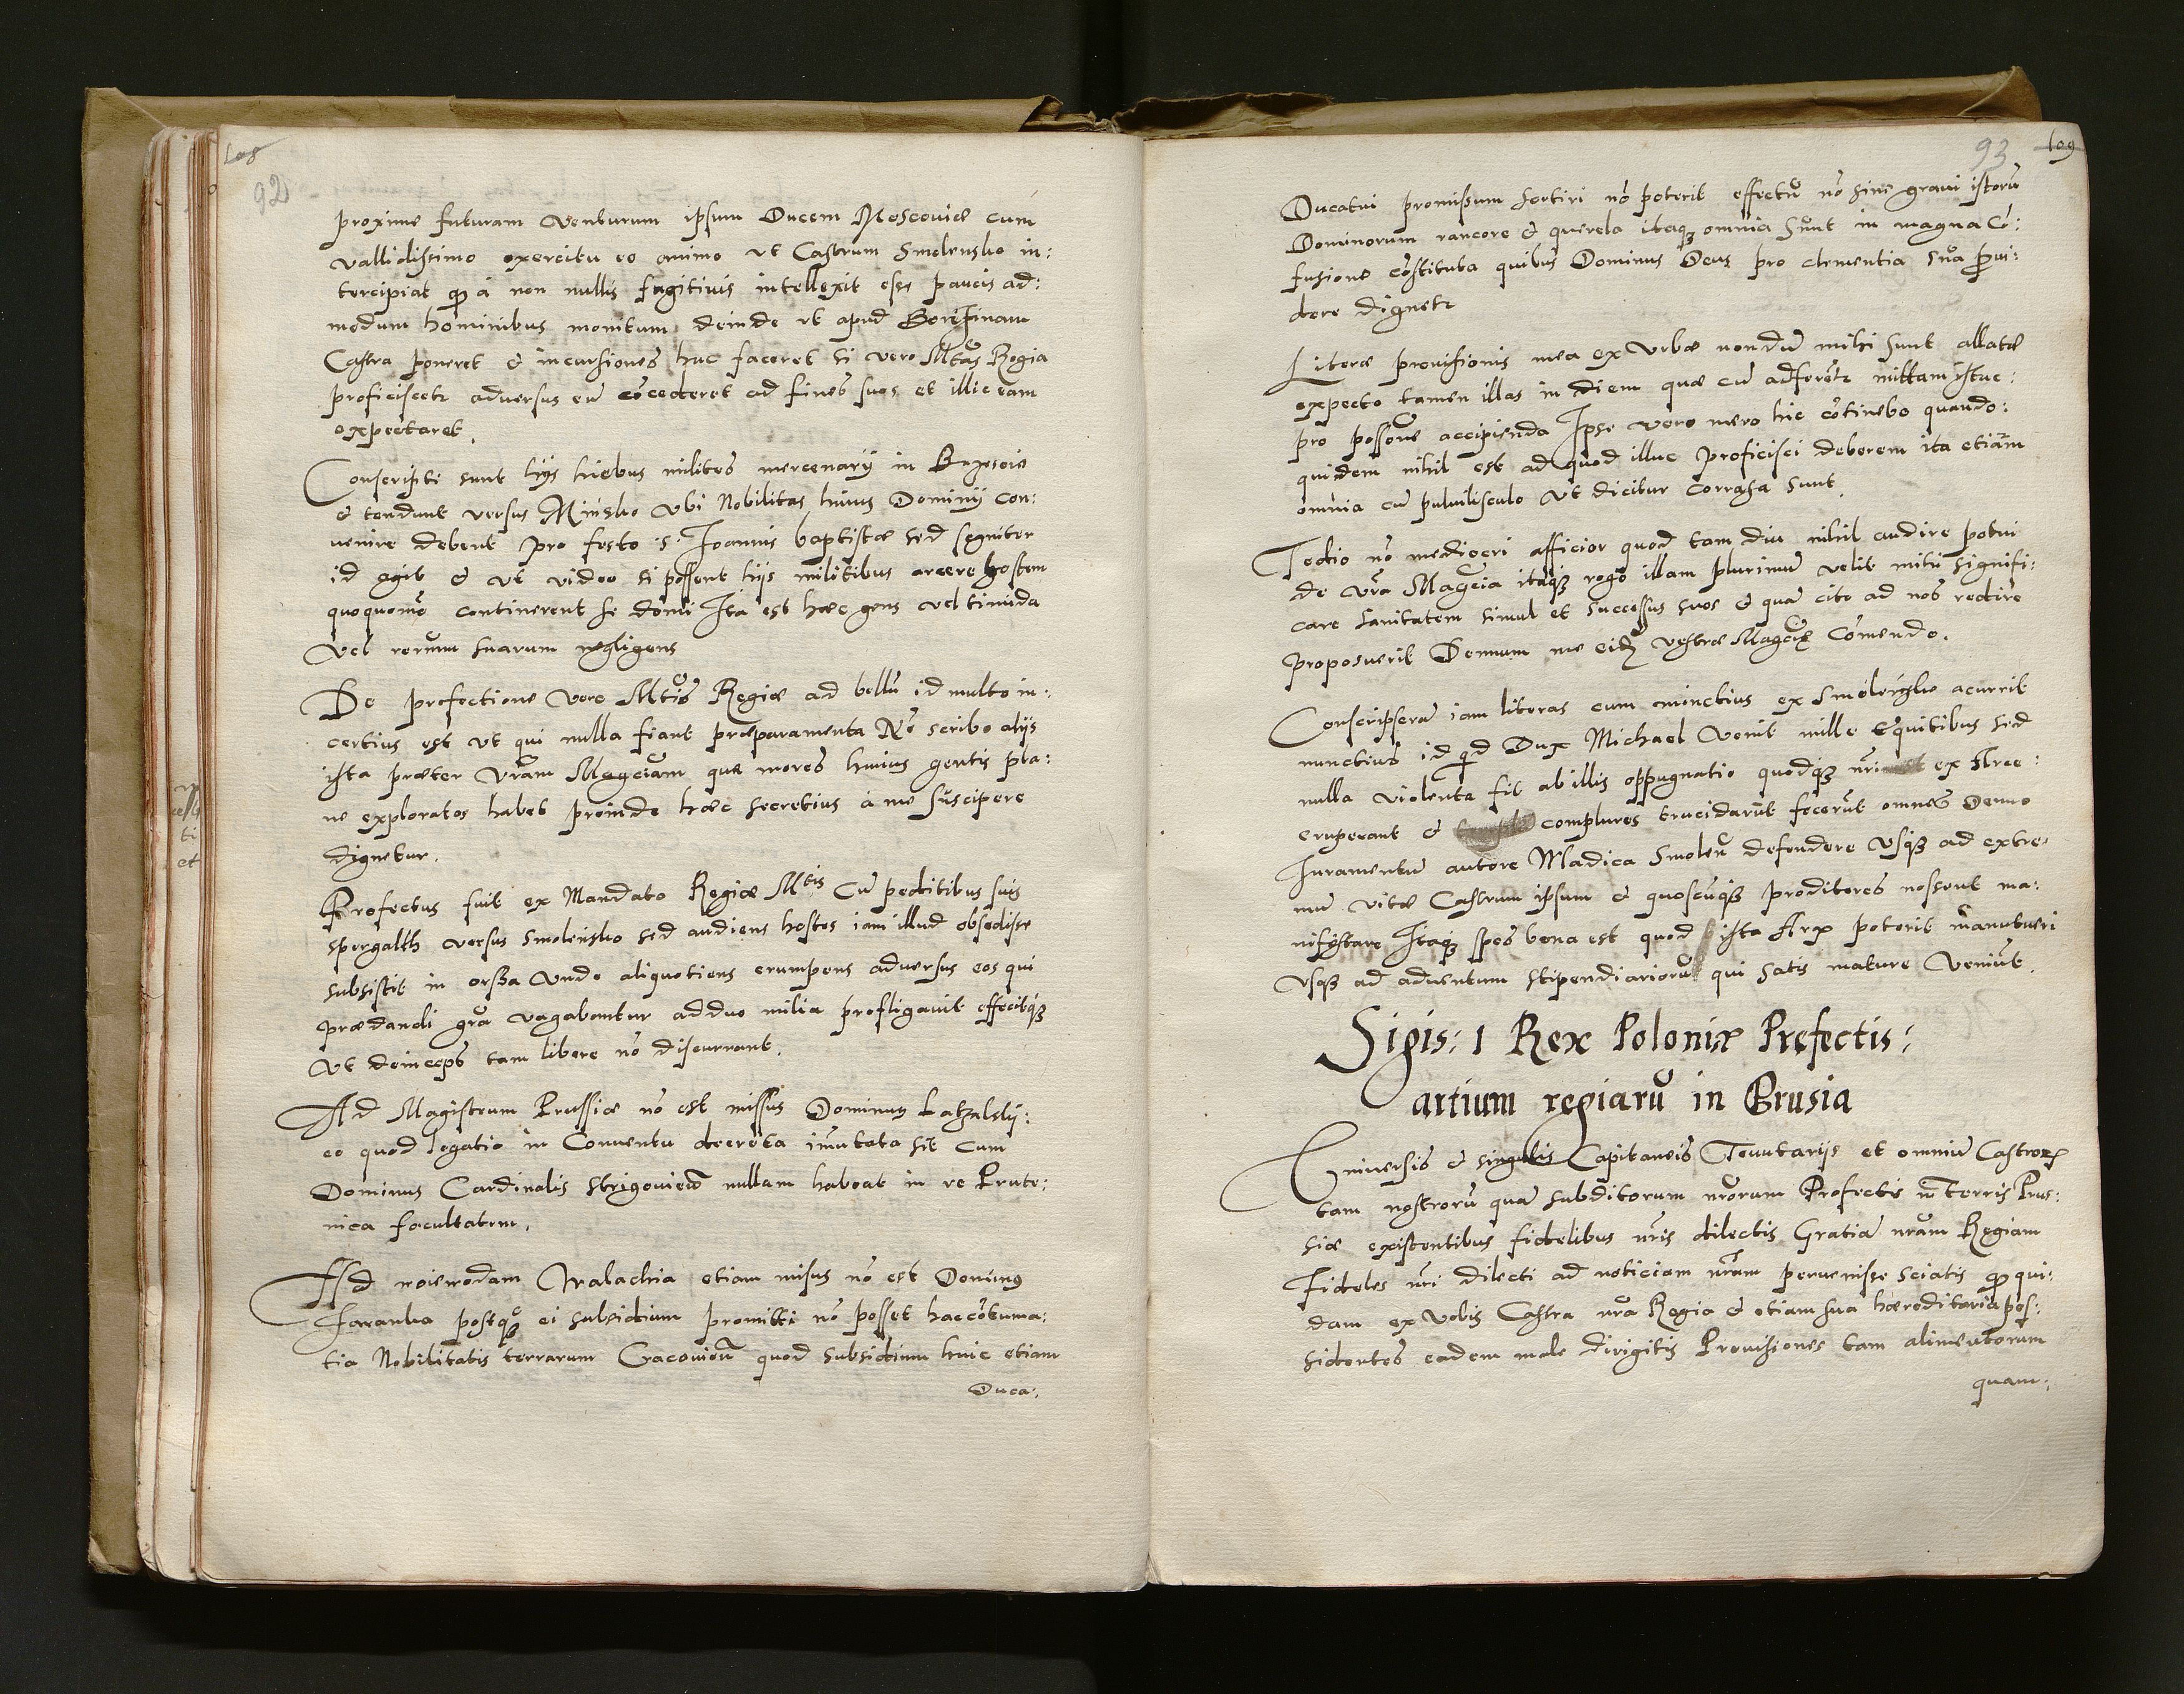 108
92
proxime futuram venturum ipsum Ducem Moscoviæ cum
vallidissimo exercitu eo animo ut Castrum Smolensko in:
tercipiat qȝ à non nullis fugitivis intellexit esse paucis ad:
modum hominibus monitum deinde ut apud
Castra poneret & incursiones huc faceret si vero Mtas Regia
proficiscetr adversus eū cōcederet ad fines suos et illic eam
expectaret.
Conscripti sunt hys milites mercenarÿ in
& tendunt versus Minsko Vbi Nobilitas huius Dominÿ con:
uenire debent pro festo S. Joannis baptistæ sed segniter
id agit & ut video si possent hÿs militibus arcere hostem
quoquomō continerent se domi Ita est hæc gens vel timida
Vel rerum suarum negligens
De profectione vero Mtis Regiæ ad bellū id multo in:
certius est ut qui nulla fiant præparamenta Nō scribo alÿs
ista præter Vram Magciam quæ mores huius gentis pla:
ne exploratos habet proinde hæc secretius à me suscipere
dignetur.
Profectus fuit ex Mandato Regiæ Mtis Cū peditibus suis
spergalth versus Smolensko sed audiens hostes iam illud obsedisse
subsistit in orsza Unde aliquotiens erumpens adversus eos qui
prædandi gra vagabantur ad duo milia profligavit effecitqȝ
Vt deinceps tam libere nō discurrant.
Ad Magistrum Prussiæ nō est missus Dominus
eo quod legatio in Conventu decreta imutata sit cum
Dominus Cardinalis Strigovien nullam habeat in re Prute:
nica facultatem.
Ad woiewodam Walachia etiam misus nō est Dominus
postqȝ ei subsidium promitti nō posset hac cōtuma:
tia Nobilitatis terrarum Cracovien quod subsidium huic etiam
Duca:
93 109
Ducatui promissum sortiri nō poterit effectū nō sine gravi istorū
Dominorum rancore & querela itaqȝ omnia sunt in magna Cō:
fusione cōstituta quibus Dominus Deus pro clementia sua pvi:
dere dignetr
Literæ provisionis mea ex Urbe nondū mihi sunt allatæ
expecto tamen illas in diem quæ cū adferētr mittam istuc:
pro possone accipienda Ipse vero mero hic cōtinebo quando:
quidem nihil est ad quod illuc proficisci deberem ita etiam
omnia cū pulvilisculo Ut dicitur corrasa sunt.
Tedio nō mediocri afficior quod tam diu nihil audire potui
de Vra Magcia itaqȝ rogo illam plurimū velit mihi signifi:
care sanitatem simul et successus suos & quā cito ad nos redire
proposuerit Demum me eidȝ vestræ Magciæ Cōmendo.
Conscripserā iam literas cum nunctius ex Smolensko acurrit
nunctius id qd Dux Michael Venit mille Equitibus sed
nulla violenta fit ab illis oppugnatio quodqȝ nri ex Arce:
eruperant & complures trucidarūt fecerūt omnes Denuo
Juramentū autore Wladica Smolen defendere Usqȝ ad extre:
mū vitæ Castrum ipsum & quoscūqȝ proditores nossent ma:
nifestare Itaqȝ spes bona est quod ista Arx poterit manuteneri
Usqȝ ad adventum stipendiariorū qui satis mature Veniūt.
Sigis: 1 Rex Poloniæ Prefectis:
artium regiarū in Brusia
Vniversis & singulis Capitaneis Tenutarÿs et omniū Castrorȝ
tam nostrorū quā subditorum nrorum Prefectis in Terris Prus:
siæ existentibus fidelibus nris dilectis Gratiā nram Regiam
Fideles nri dilecti ad noticiam nram pervenisse sciatis qȝ qui:
dam ex Vobis Castra nra Regia & etiam sua hæreditaria pos:
sidentes eadem male dirigitis Provisiones tam alimentorum
quam: